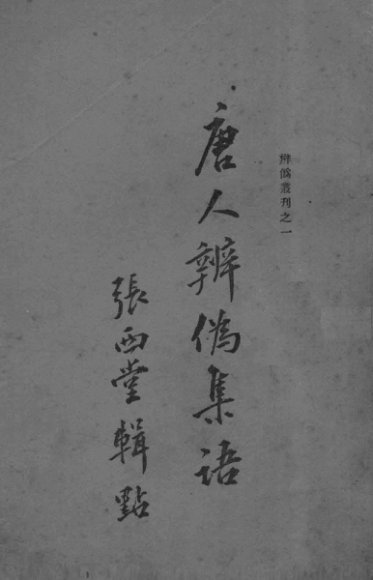 辨僞叢刊之一
唐人辨僞集语
張西堂輯點